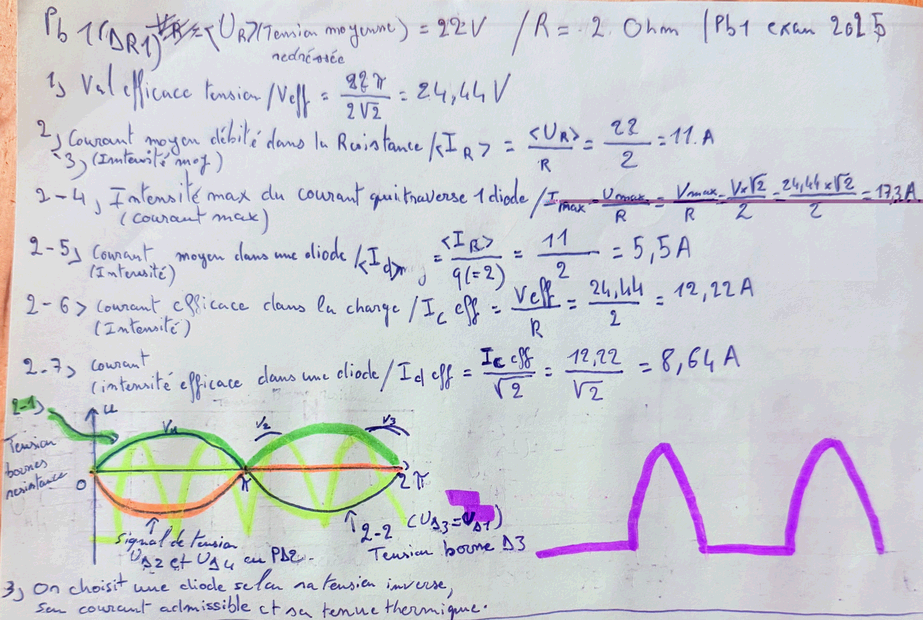 Pb 1 (ΔR1) <U_R> (Tension moyenne) = 22V / R = 2 Ohm / Pb1 exam 2025
redressée
1, Val efficace tension / Veff = 22 π / 2√2 = 24,44 V
2, Courant moyen débité dans la Résistance / <I_R> = <U_R> / R = 22 / 2 = 11 A
3, (Imtensité moy)
2-4, Intensité max du courant qui traverse 1 diode / I max = Vmax / R = Vmax / R = V×√2 / 2 = 24,44×√2 / 2 = 17,3 A
(courant max)
2-5, Courant moyen dans une diode / <Id> = <I_R> / q(=2) = 11 / 2 = 5,5 A
(Intensité)
2-6> courant efficace dans la charge / I_c eff = Veff / R = 24,44 / 2 = 12,22 A
(Intensité)
2.7> courant
(intensité efficace dans une diode / Id eff = I_c eff / √2 = 12,22 / √2 = 8,64 A
2-1)
u
V1
V2
V3
Tension
bornes
resistance
0
π
2π
signal de tension
U_Δ2 et U_Δ4 ou PD2
2-2 (U_Δ3 = U_Δ1)
Tension borne Δ3
3, On choisit une diode selon sa tension inverse,
son courant admissible et sa tenue thermique.